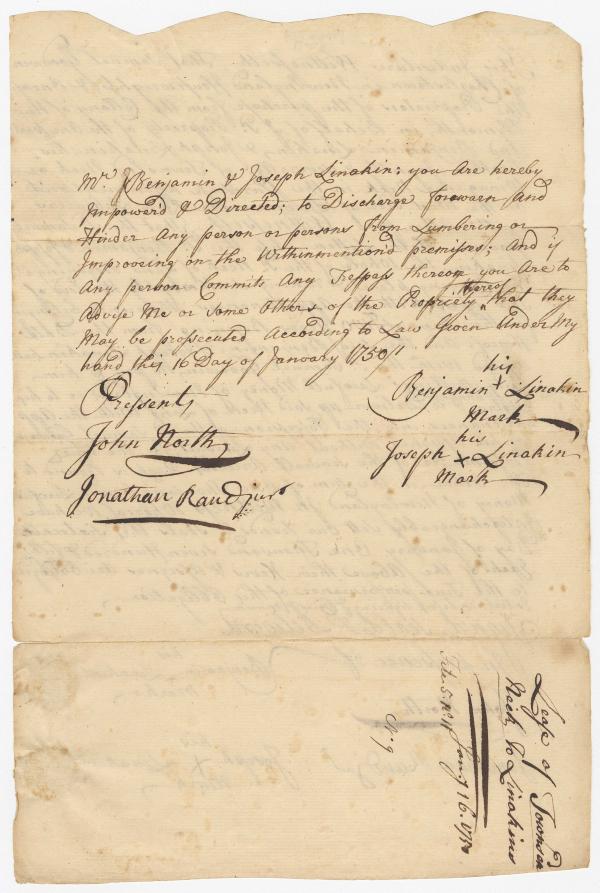 Mr. Benjamin & Joseph Linakin: you are hereby
Impower'd & Directed; to Discharge forewarn and
Hinder Any person or persons from Lumbering or
Improveing on the Withinmention'd premises; And if
Any person Commits Any Trespass thereon you Are to
Advise Me or some others of the Propriety thereof that they
May be prossecuted According to Law Given Under My
hand this 16 Day of January 1750/1
Pressent,
John North
Jonathan Rand Junr
his
Benjamin x Linakin
Mark
his
Joseph x Linakin
Mark
Lease of Townsend
Neck to Linakins
Jany 16. 1750
No. 9